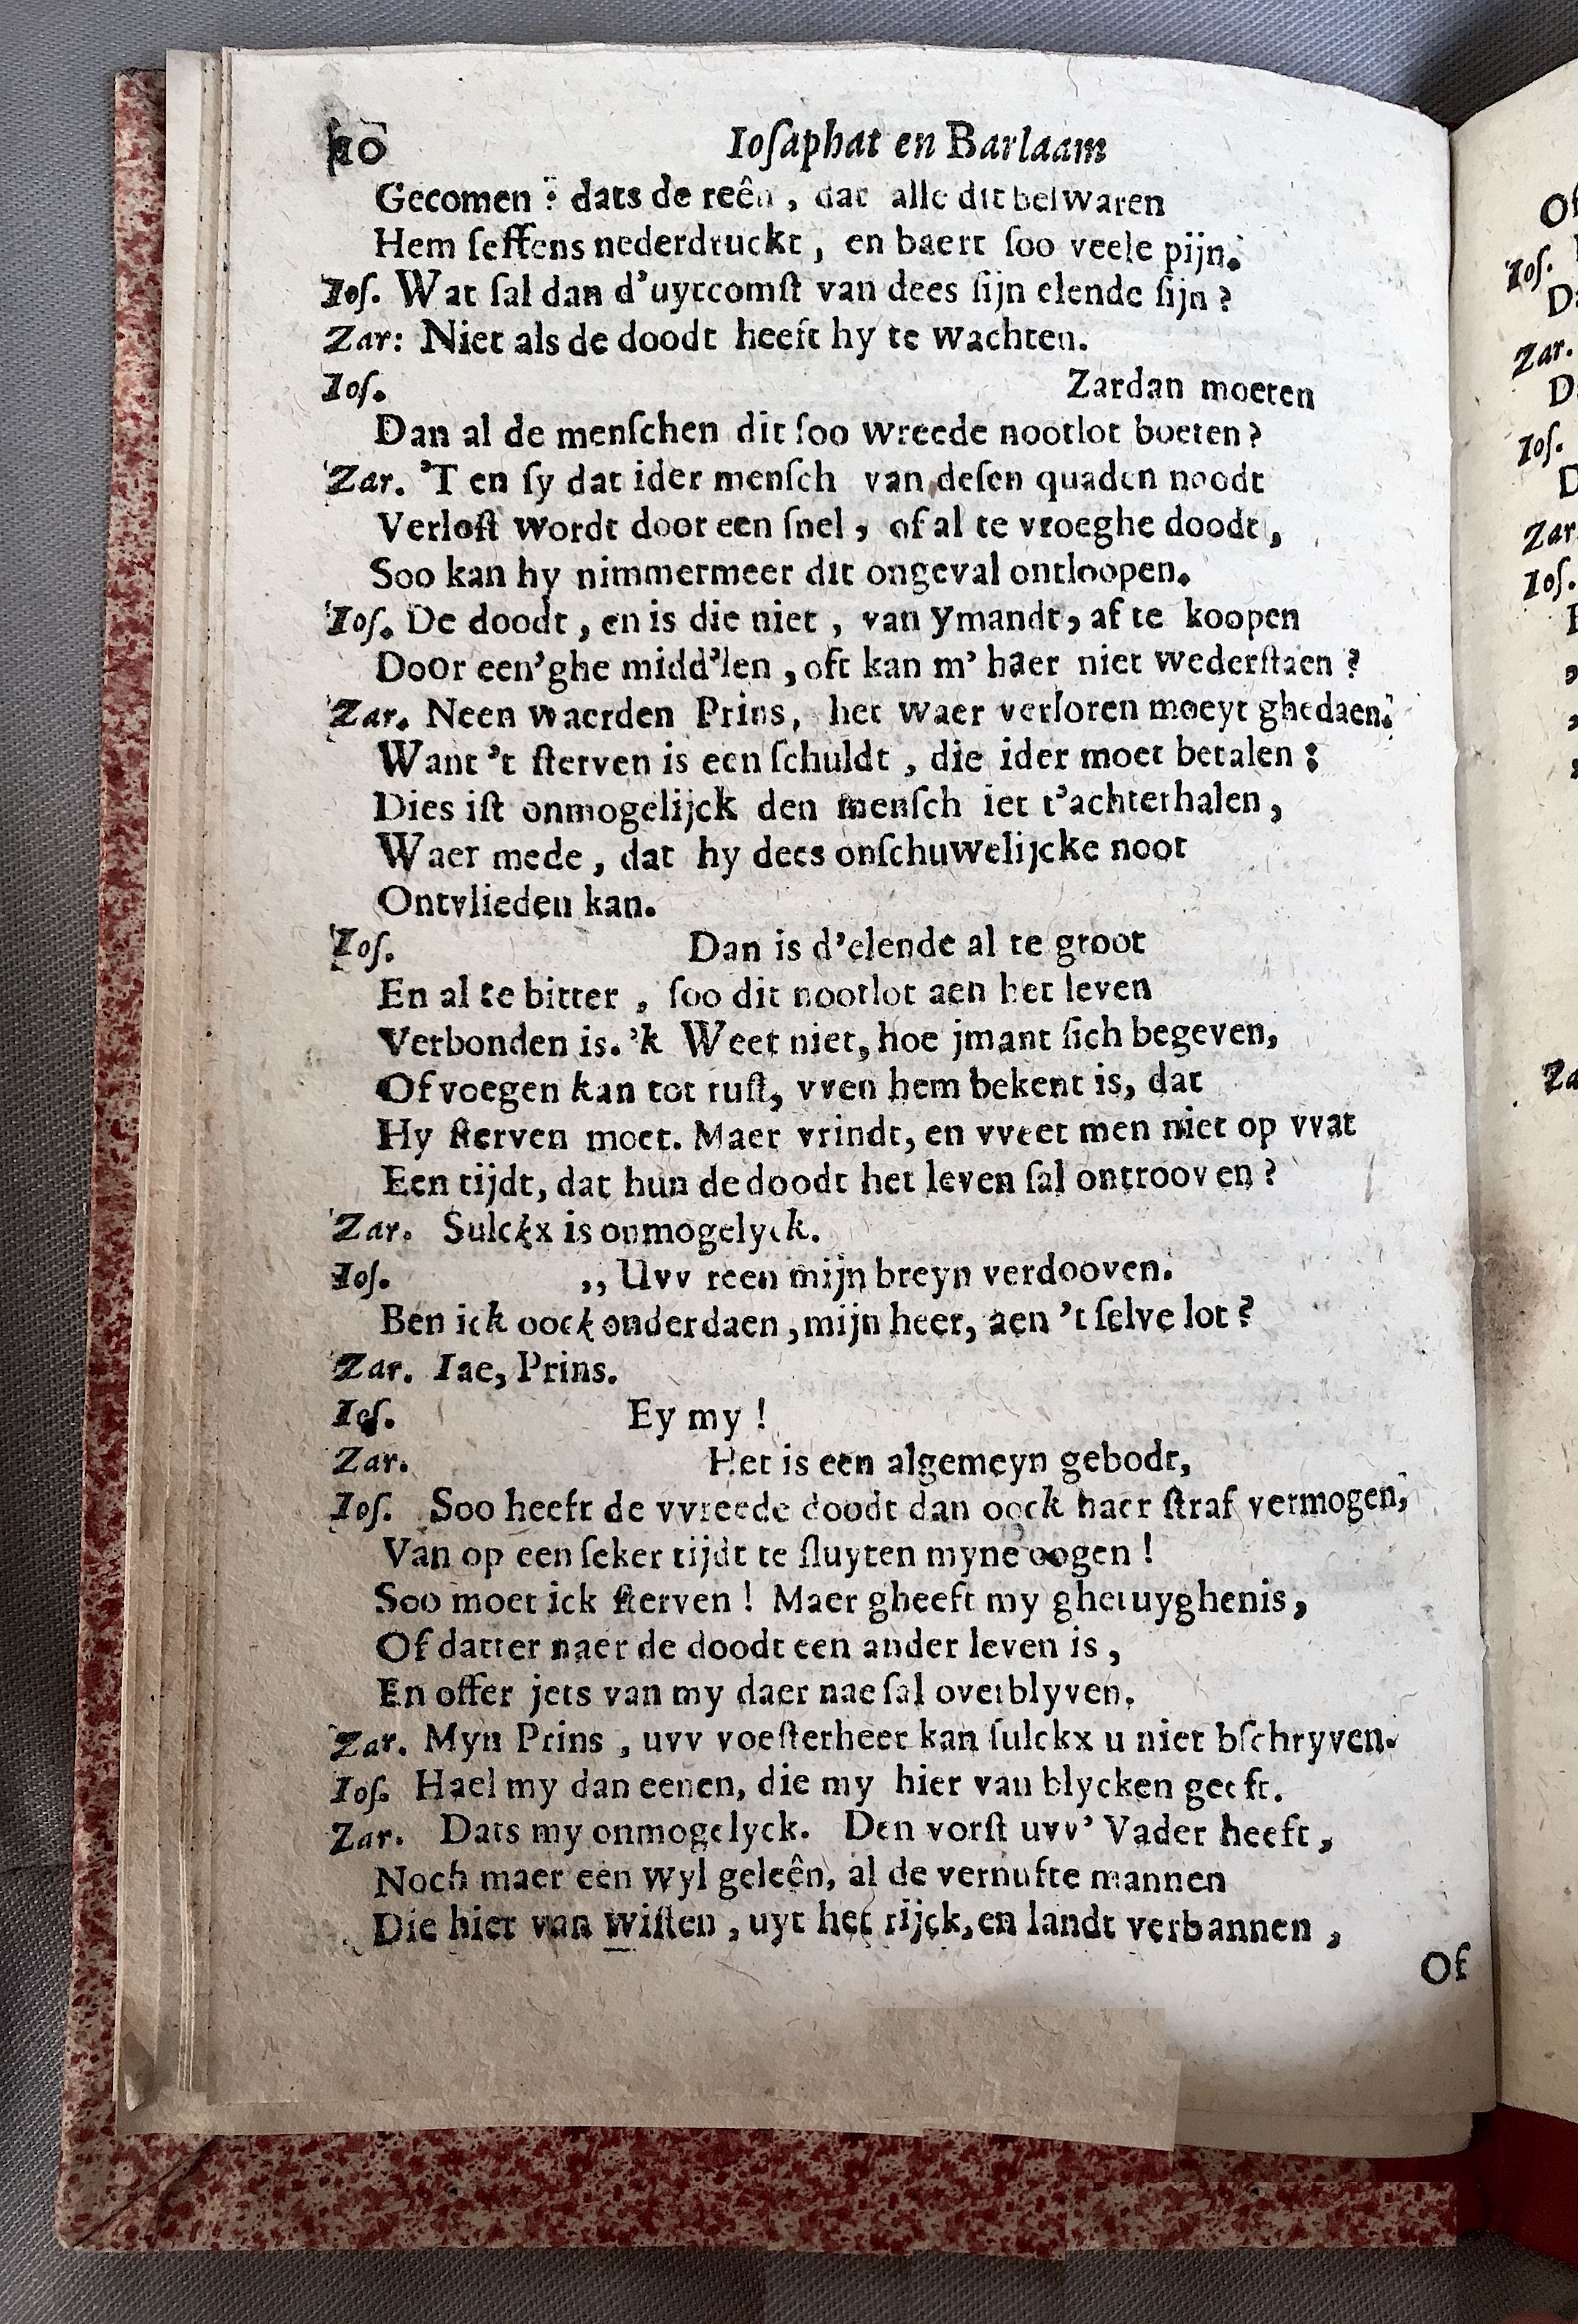 10 Ioſaphat en Barlaam
Gecomen : dats de reên, dat alle dit belwaren
Hem ſeffens nederdruckt, en baert ſoo veele pijn.
Ioſ. Wat ſal dan d'uytcomſt van dees ſijn elende ſijn?
Zar: Niet als de doodt heeft hy te wachten.
Ioſ. Zardan moeten
Dan al de menſchen dit ſoo wreede nootlot boeten?
Zar. 'T en ſy dat ider menſch van deſen quaden noodt
Verloſt wordt door een ſnel, of al te vroeghe doodt,
Soo kan hy nimmermeer dit ongeval ontloopen.
Ioſ. De doodt, en is die niet, van ymandt, af te koopen
Door een'ghe midd'len, oft kan m' haer niet wederſtaen?
Zar. Neen waerden Prins, het waer verloren moeyt ghedaen.
Want 't ſterven is een ſchuldt, die ider moet betalen:
Dies iſt onmogelijck den menſch iet t'achterhalen,
Waer mede, dat hy dees onſchuwelijcke noot
Ontvlieden kan.
Ioſ. Dan is d'elende al te groot
En al te bitter, ſoo dit nootlot aen het leven
Verbonden is. 'k Weet niet, hoe jmant ſich begeven,
Of voegen kan tot ruſt, vven hem bekent is, dat
Hy ſterven moet. Maer vrindt, en vveet men niet op vvat
Een tijdt, dat hun de doodt het leven ſal ontrooven?
Zar. Sulckx is onmogelyck.
Ioſ. ,, Uvv reen mijn breyn verdooven.
Ben ick oock onderdaen, mijn heer, aen 't ſelve lot?
Zar. Iae, Prins.
Ioſ. Ey my!
Zar. Het is een algemeyn gebodt,
Ioſ. Soo heeft de vvreede doodt dan oock haer ſtraf vermogen,
Van op een ſeker tijdt te ſluyten myne oogen!
Soo moet ick ſterven! Maer gheeft my ghetuyghenis,
Of datter naer de doodt een ander leven is,
En offer jets van my daer nae ſal overblyven.
Zar. Myn Prins, uvv voeſterheer kan ſulckx u niet bſchryven.
Ioſ. Hael my dan eenen, die my hier van blycken geeft.
Zar. Dats my onmogelyck. Den vorſt uvv' Vader heeft,
Noch maer een wyl geleên, al de vernufte mannen
Die hier van wiſten, uyt het rijck, en landt verbannen,
Of
Of
Ioſ.
Zar.
Ioſ.
Zar
Ioſ.
Za